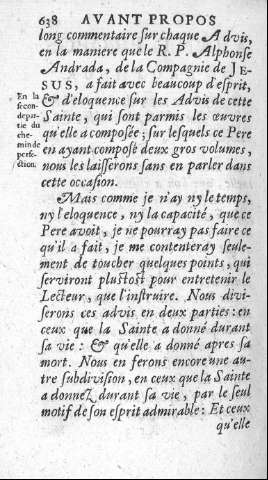 638 AVANT PROPOS
long commentaire sur chaque Advis,
en la maniere que le R. P. Alphonse
Andrada, de la Compagnie de JE-
SUS, a fait avec beaucoup d'esprit,
& d'eloquence sur les Advis de cette
Sainte, qui sont parmis les œuvres
qu'elle a composée; sur lesquels ce Pere
en ayant composé deux gros volumes,
nous les laisserons sans en parler dans
cette occasion.
En la
secon-
depar-
tie du
che-
min de
perfe-
ction.
Mais comme je n'ay ny le temps,
ny l'eloquence, ny la capacité, que ce
Pere avoit, je ne pourray pas faire ce
qu'il a fait, je me contenteray seule-
ment de toucher quelques points, qui
serviront plustost pour entretenir le
Lecteur, que l'instruire. Nous divi-
serons ces advis en deux parties: en
ceux que la Sainte a donné durant
sa vie: & qu'elle a donné apres sa
mort. Nous en ferons encore une au-
tre subdivision, en ceux que la Sainte
a donnez durant sa vie, par le seul
motif de son esprit admirable: Et ceux
qu'elle